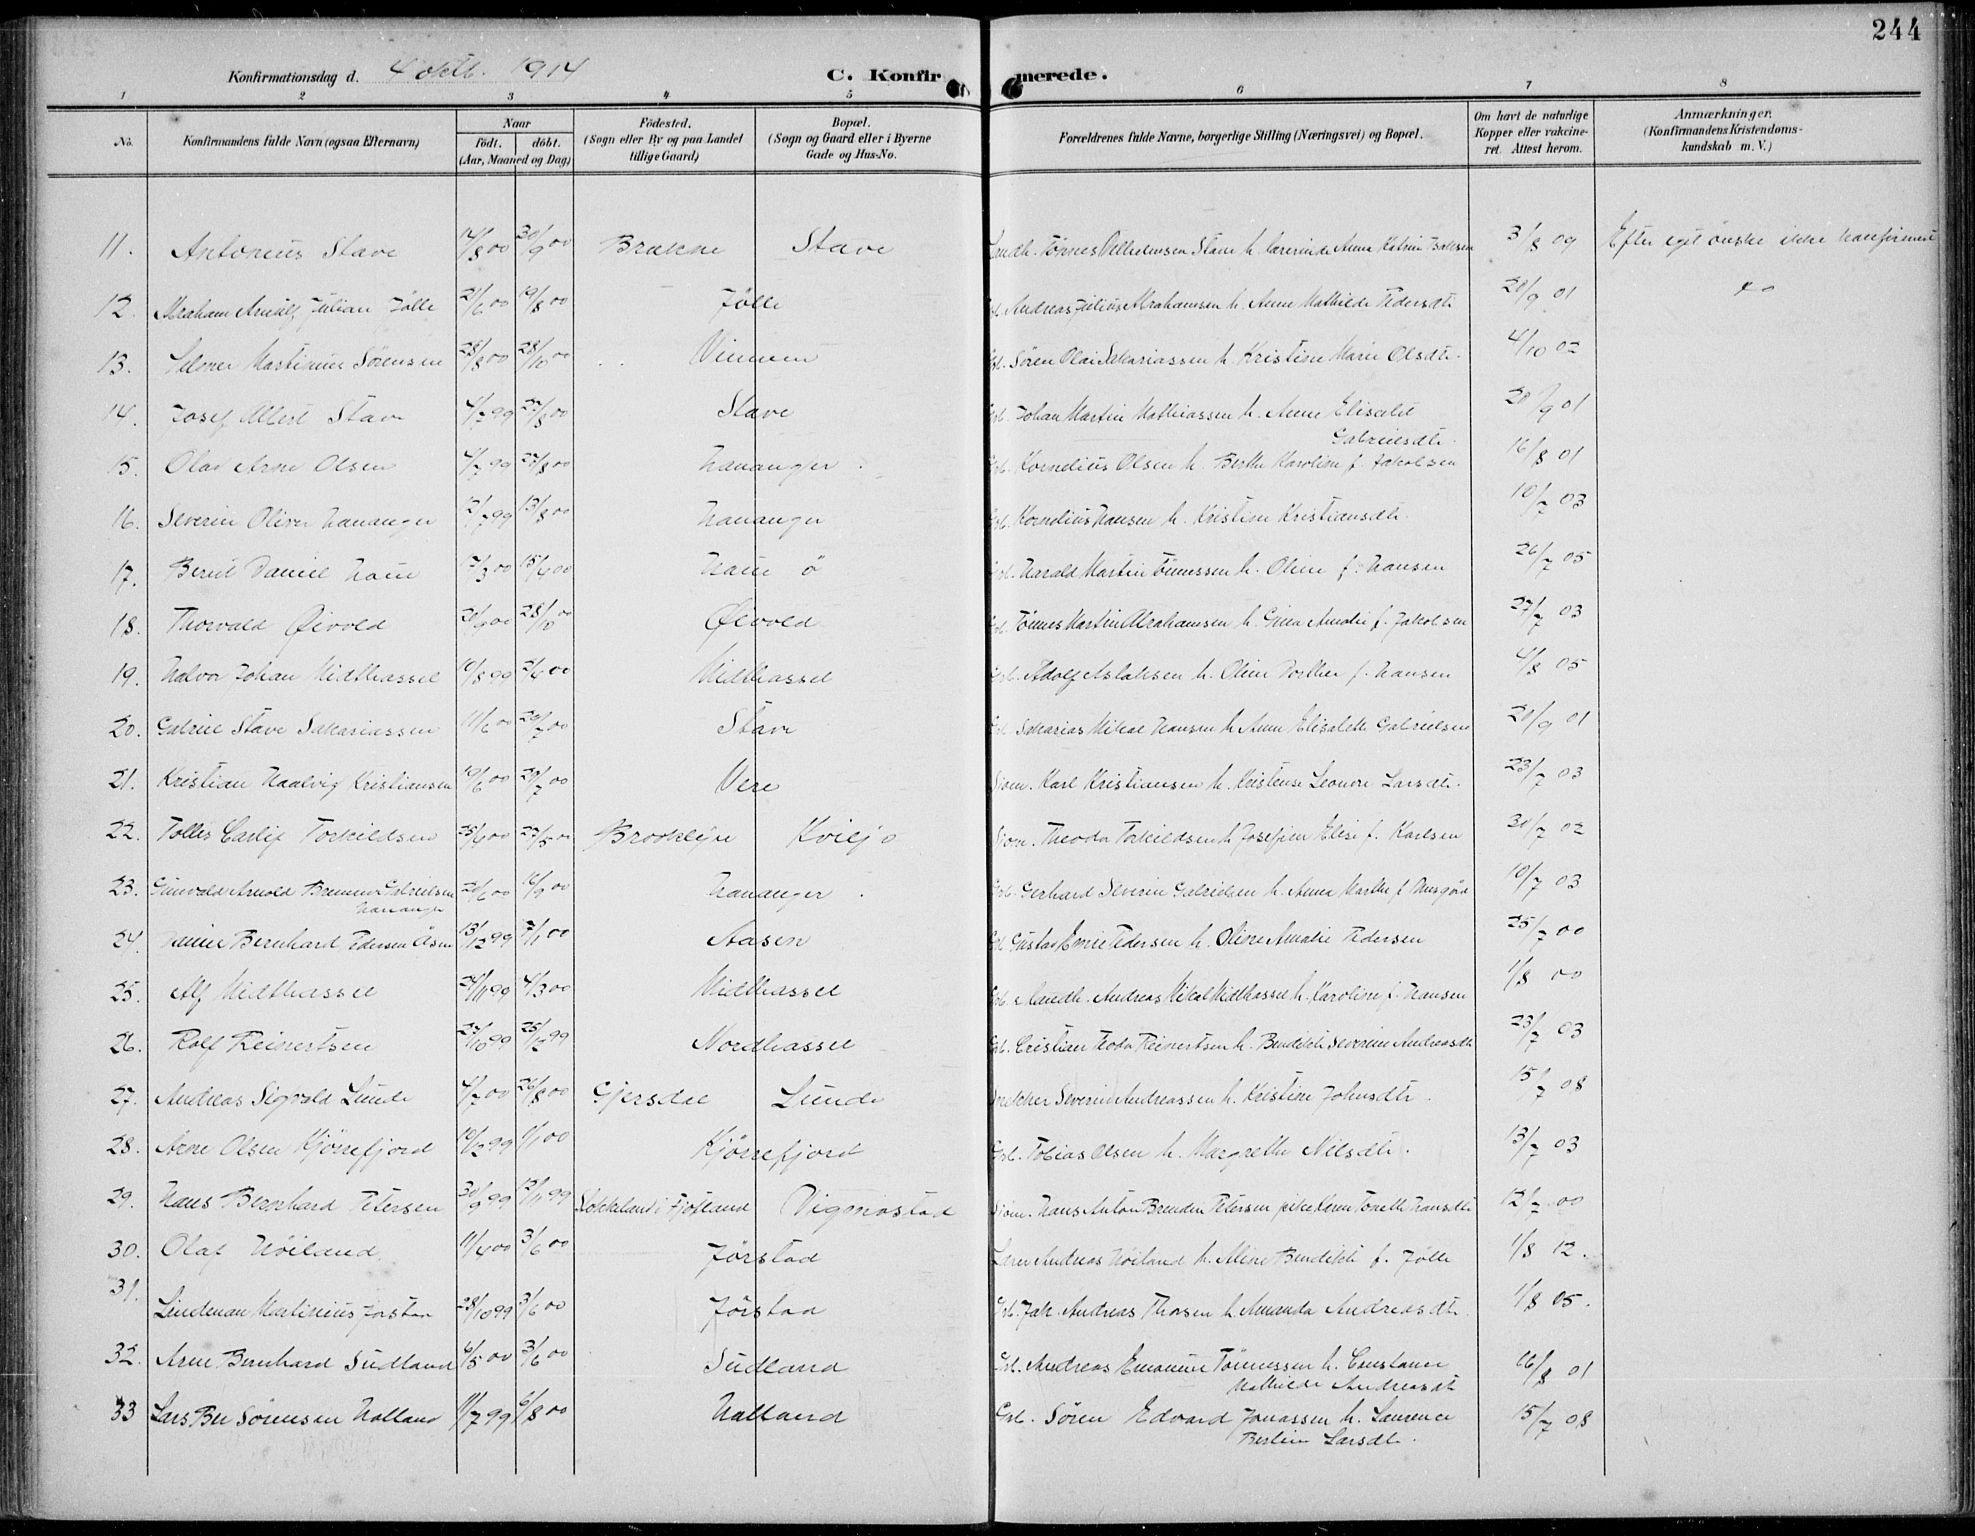 244
Konfirmationsdag d. 4 oktb. 1914 C. Konfirmerede.
1 2 3 4 5 6 7 8
No. Konfirmandens fulde Navn (ogsaa Efternavn) Naar födt. döbt. (Aar, Maaned og Dag) Födested. (Sogn eller By og paa Landet tillige Gaard) Bopæl. (Sogn og Gaard eller i Byerne Gade og Hus-No. Forældrenes fulde Navne, borgerlige Stilling (Næringsvei) og Bopæl. Om havt de naturlige Kopper eller vakcineret. Attest herom. Anmærkninger. (Konfirmandens Kristendomskundskab m. V.)
11. Antonius Stave 14/8 00 30/9 00 Brakne Stave Landh. Tönnes Vilhelmsen Stave h. lærerinde Anna Katrine Isaksen 3/8 09 Efter eget önske ikke konfirmert
12. Abraham Arnulf Julian Jölle 21/6 00 19/8 00 Jölle Andreas Julius Abrahamsen h. Anne Mathilde Pedersdt. 20/9 01 do
13. Selmer Martinius Sörensen 28/8 00 28/10 00 Sören Olai Sakariassen h. Kristine Marie Olsdt. 4/10 02
14. Josef Albert Stave 4/7 99 Stave Johan Martin Mathiassen h. Anne Elisabet
Gabrielsdt. 20/9 01
15. Olav Arne Olsen 4/7 99 27/8 00 Hananger Kornelius Olsen h. Berthe Karoline f. Jakobsen 16/8 01
16. Severin Oliver Hananger 12/7 99 13/8 00 Hananger Kornelius Hansen h. Kristine Kristiansdt. 10/7 03
17. Berut Daniel Haue 17/3 00 15/4 00 Haue ö Harald Martin Tönnessen h. Oline f. Hansen 26/7 05
18. Thorvald Øivold 28/10 00 Øivold Tönnes Martin Abrahamsen h. Gina Amalie f. Jakobsen 27/7 03
19. Halvor Johan Midthassel 10/8 99 2/4 00 Midthassel Adolf Aslaksen h. Oline Dorthea f. Hansen 4/8 05
20. Gabriel Stave Sakariassen 11/6 00 Stave Sakarias Mikal Hansen h. Anne Elisabeth Gabrielsen 20/9 01
21. Kristian Haalvig Kristiansen 19/6 00 29/7 00 Vere Karl Kristiansen h. Kristense Leonore Larsdt. 23/7 03
22. Torkildsen Brooklyn Kviljo Theodor Torkildsen h. Josefine Elise f. Karlsen 30/7 02
23. Gunvald Arnold Brunner Gabrielsen
Hananger 16/9 00 Hananger Gerhard Severin Gabrielsen h. Anna Marthe f. 10/7 03
24. Daniel Bernhard Pedersen Åsen 13/12 99 7/1 00 Aasen Gustav Emil Pedersen h. Oline Amalie Pedersen 25/7 00
25. Alf Midthassel 24/11 99 4/3 00 Midthassel Landh. Andreas Mikal Midthassel h. Karoline f. Hansen 1/8 00
26. Rolf Reinertsen 27/10 99 25/12 99 Nordhassel Cristian Teodor Reinertsen h. Bendikte Severine Andreasdt. 23/7 03
27. Andreas Sigvald Lunde 4/7 00 26/8 00 Gjersdal Lunde Snekker Severin Andreassen h. Kristine Johnsdt. 15/7 08
28. Arne Olsen Kjörrefjord 10/12 99 1/1 00 Kjörrefjord Grb. Tobias Olsen h. Margrethe Nilsdt. 13/7 03
29. Hans Bernhard Petersen 30/9 99 12/11 99 Lökkeland i Fjotland Vigmostad Hans Anton Brenden Petersen pike Tonette Hansdt. 12/7 00
30. Olaf Höiland 11/4 00 3/6 00 Jörstad Lærer Andreas Höiland h. Aline Bendikte f. Jölle 1/8 12.
31. Lindeman Martinius Jorstad 28/10 99 3/6 00 Jörstad Grb. Jak. Andreas Thorsen h. Amanda Andreasdt. 1/8 05.
32. Arne Bernhard Sudland 6/5 00 3/6 00 Sudland Grb. Andreas Emanuel Tönnessen h. Constance
Mathilde Andreasdt. 16/8 01
33 Lars Ber Sörensen Halland 11/7 99 6/8 00 Halland Grb. Sören Edvard Jonassen h. Laurence
Bertine Larsdt. 15/7 08